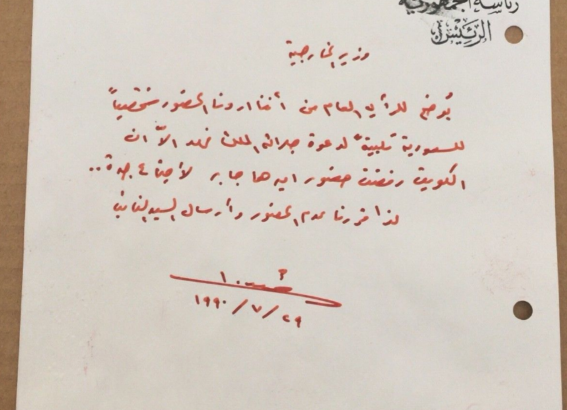 رئاسة الجمهورية
الرئيس
وزير الخارجية
يوضح للرأي العام من أننا اردنا الحضور شخصياً
للسعودية تلبيةً لدعوة جلالة الملك فهد الا أن
الكويت رفضت حضور اميرها جابر لأجتماع جدة..
لذا قررنا عدم الحضور وأرسال السيد النائب
١٩٩٠/٧/٢٩